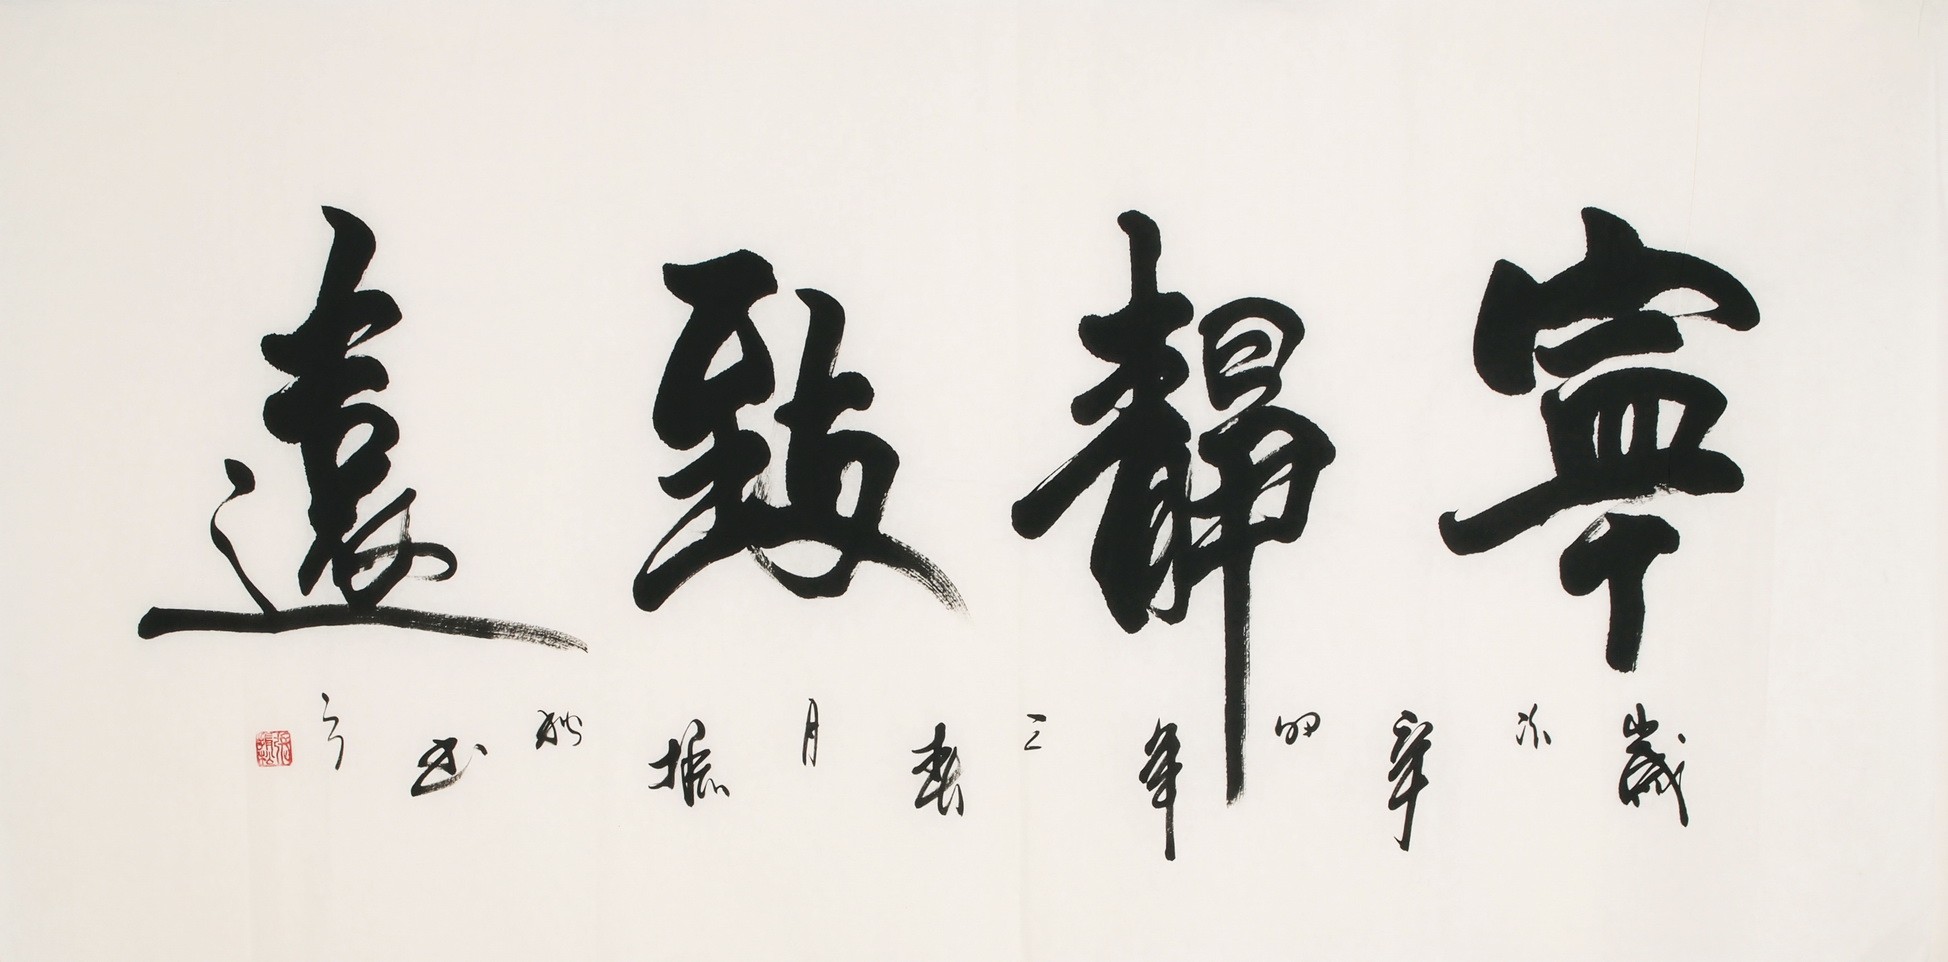 寧靜致遠
歲次辛卯年三春月振
書